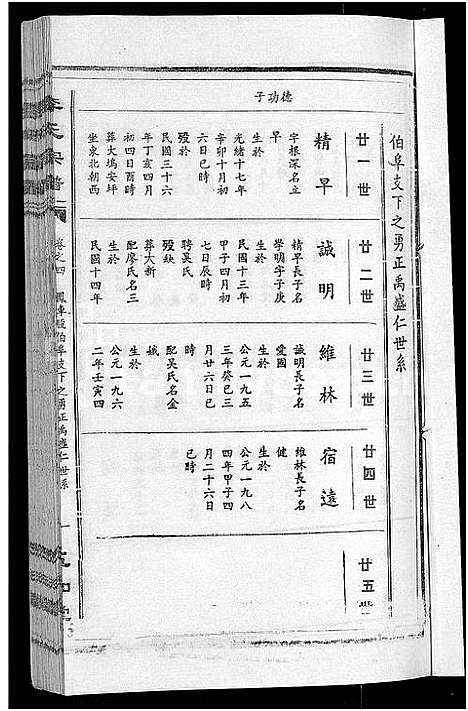 伯阜支下之勇正禹盛仁世系
廿一世
廿二世
廿三世
廿四世
廿五世
德功子
精早
字根深名立
早
生於
光緒十七年
辛卯十月初
六日巳時
歿於
民國三十六
年丁亥四月
初四日酉時
葬大塢安坪
坐東北朝西
誠明
精早長子名
學明字子庚
生於
民國十三年
甲子四月初
七日辰時
聘吳氏
歿缺
葬大新
配廖氏名三
生於
民國十四年
維林
誠明長子名
愛國
生於
公元一九五
三年癸巳三
月廿六日巳
時
配吳氏名金
娥
生於
公元一九六
二年壬寅四
宿遠
維林長子名
健
生於
公元一九八
四年甲子四
月二十六日
巳時
卷之四
伯阜支下之勇正禹盛仁世系